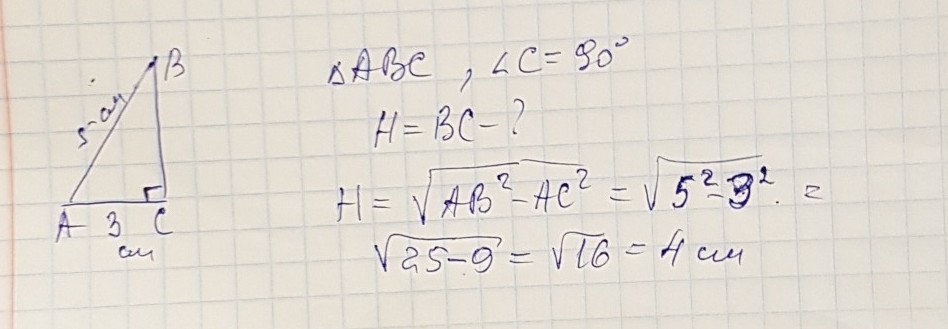 B
5 см
A 3 C
см
△ABC, ∠C = 90°
H = BC - ?
H = √AB² - AC² = √5² - 3² =
√25 - 9 = √16 = 4 см